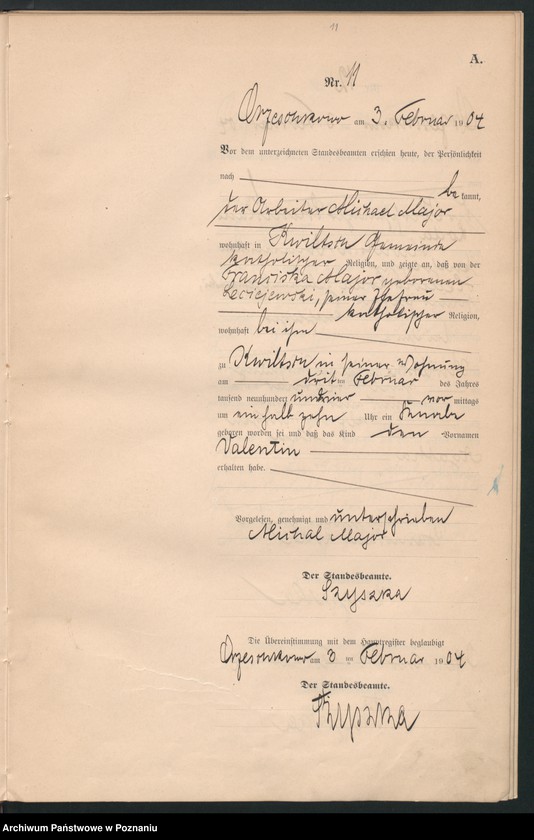 11
A.
Nr. 11
Orzeschkowo am 3. Februar 1904
Vor dem unterzeichneten Standesbeamten erschien heute, der Persönlichkeit
nach be kannt,
der Arbeiter Michael Major
wohnhaft in Kwiltsch Gemeinde
katholischer Religion, und zeigte an, daß von der
Franciska Major geborenen
Leciejewski, seiner Ehefrau
katholischer Religion,
wohnhaft bei ihm
zu Kwiltsch in seiner Wohnung
am drit ten Februar des Jahres
tausend neunhundert und vier vor mittags
um ein halb zehn Uhr ein Knabe
geboren worden sei und daß das Kind den Vornamen
Valentin
erhalten habe.
Vorgelesen, genehmigt und unterschrieben
Michal Major
Der Standesbeamte.
Die Übereinstimmung mit dem Hauptregister beglaubigt
Orzeschkowo am 3 ten Februar 1904
Der Standesbeamte.
Archiwum Państwowe w Poznaniu